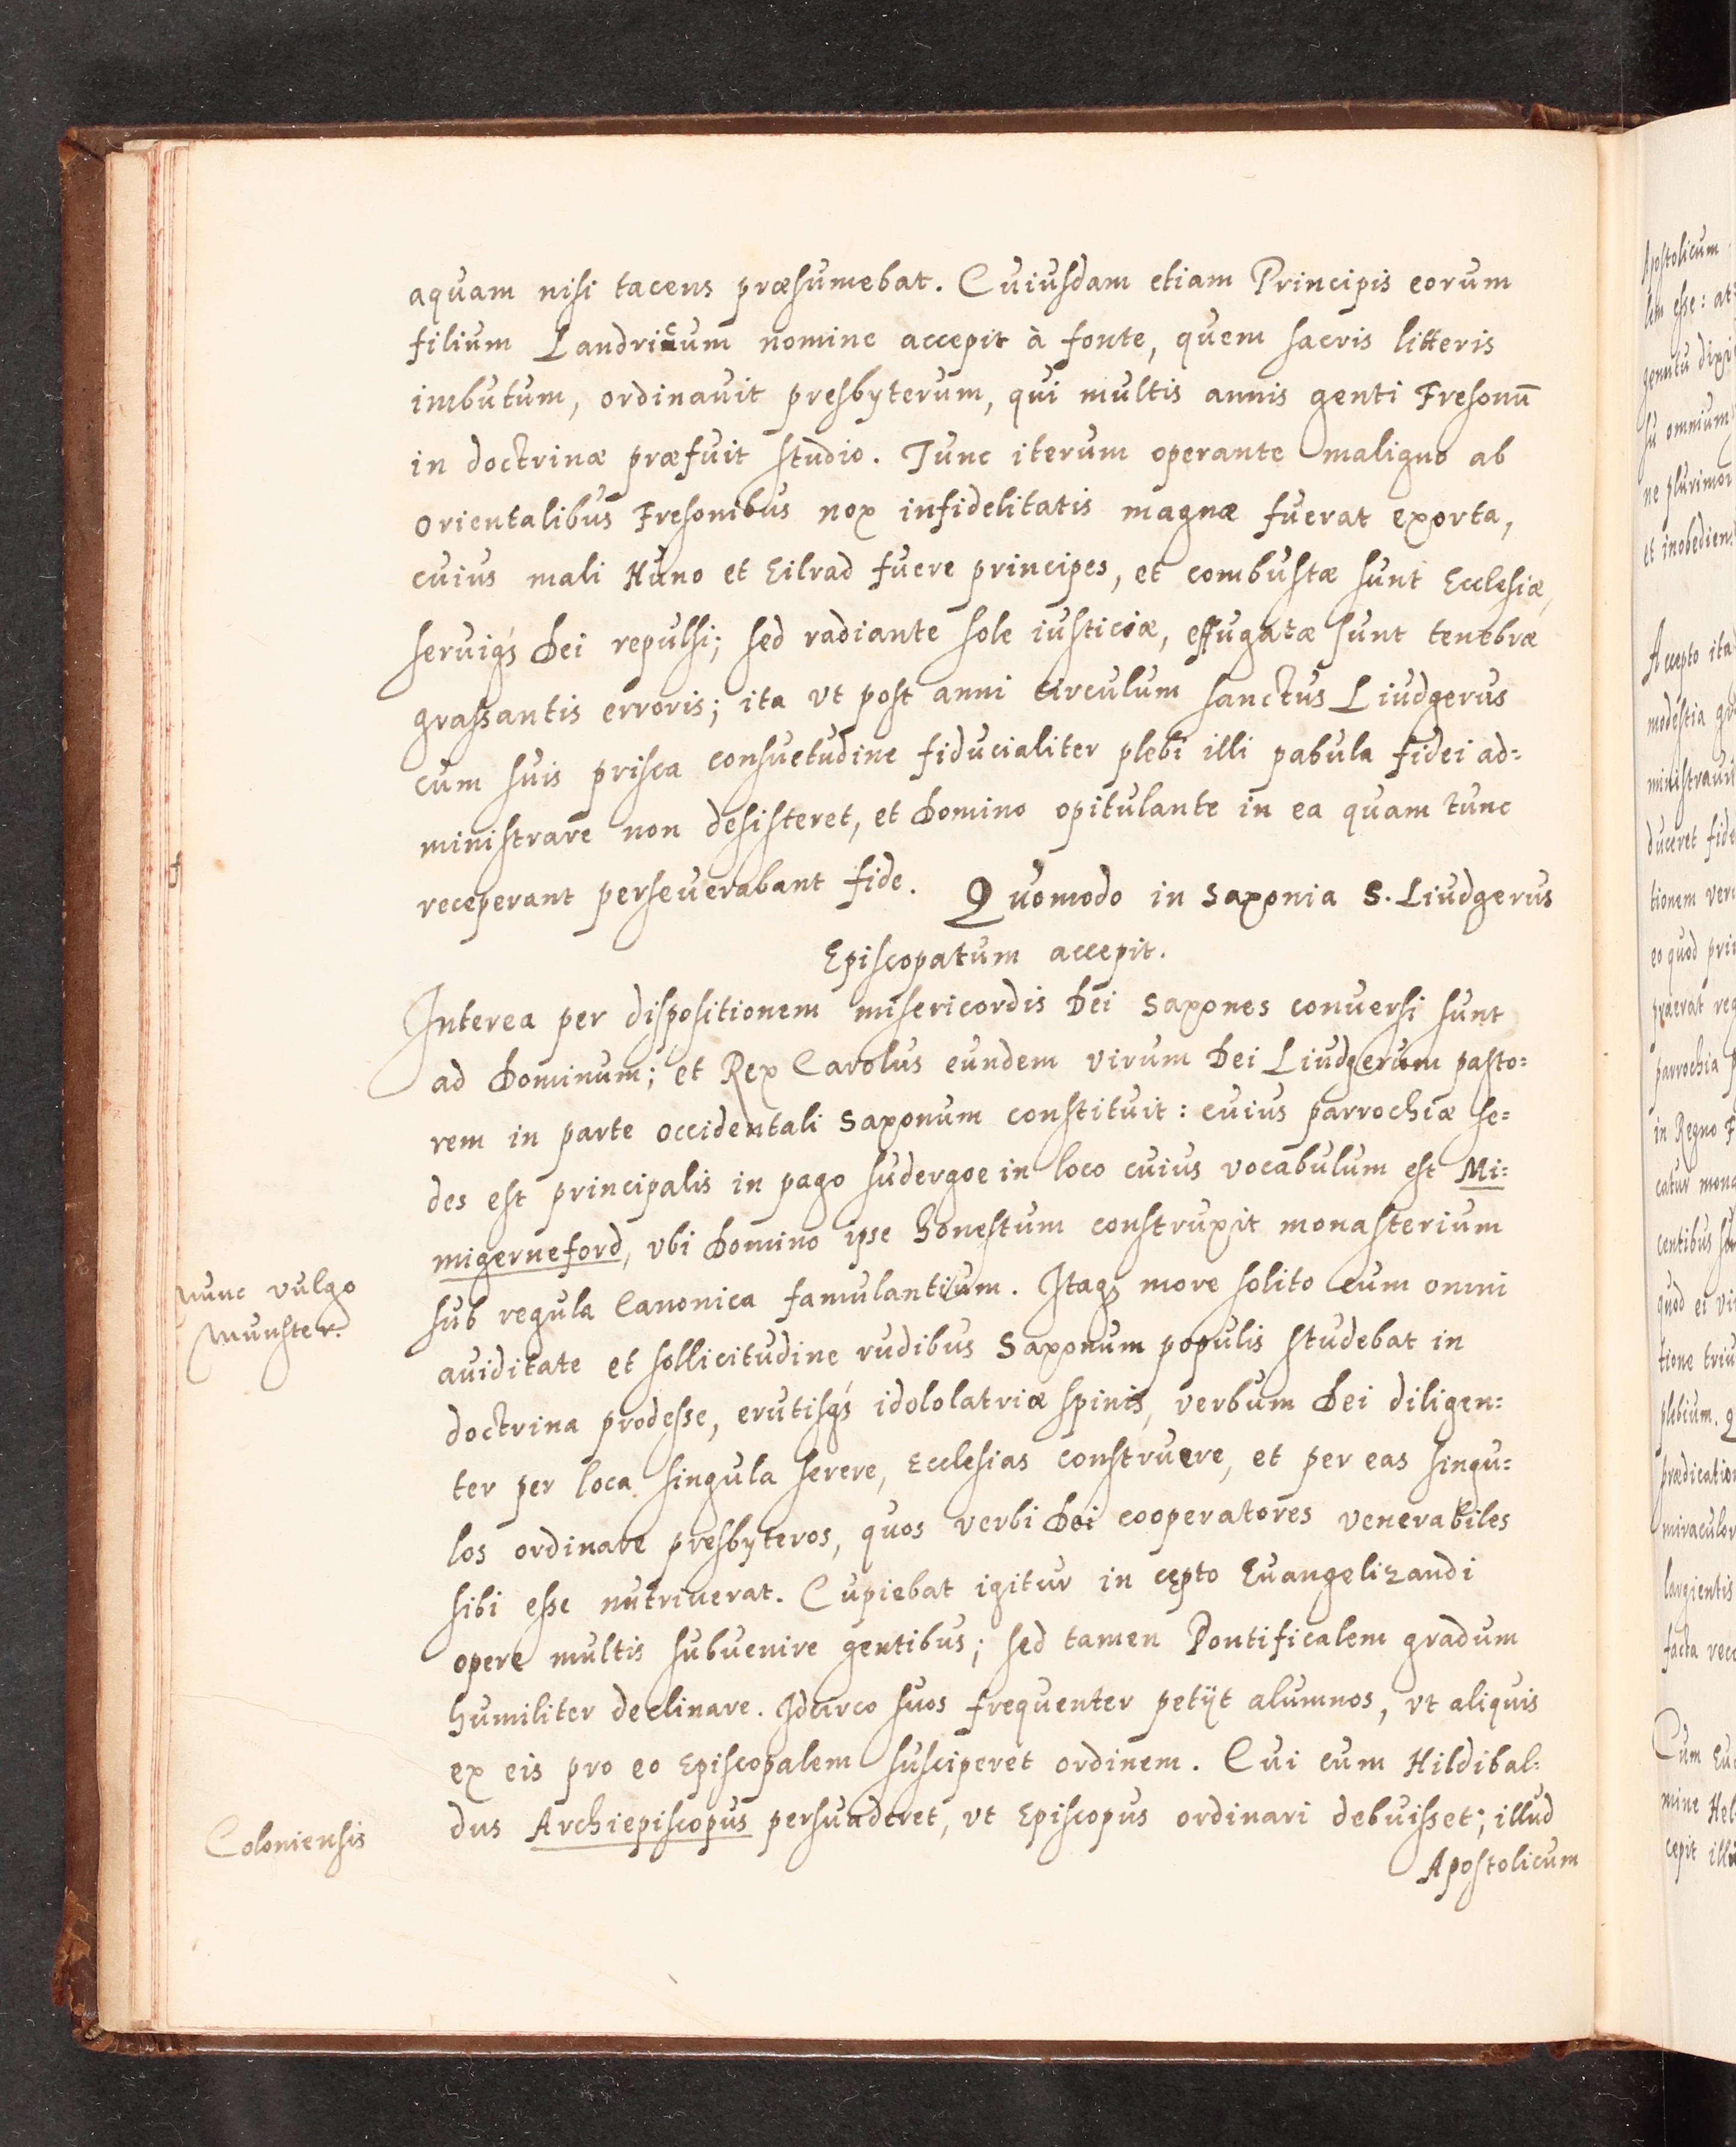 aquam nisi tacens præsumebat. Cuiusdam etiam Principis eorum
filium Landricum nomine accepit à fonte, quem sacris litteris
imbutum, ordinauit presbyterum, qui multis annis genti Fresonū
in doctrinæ præfuit studio. Tunc iterum operante maligno ab
orientalibus Fresonibus nox infidelitatis magnæ fuerat exorta,
cuius mali Huno et Eilrad fuere principes, et combustæ sunt Ecclesiæ,
seruiq́ Dei repulsi; sed radiante sole iusticiæ, effugatæ sunt tenebræ
grassantis erroris; ita vt post anni circulum sanctus Liudgerus
cum suis prisca consuetudine fiducialiter plebi illi pabula fidei ad=
ministrare non desisteret, et Domino opitulante in ea quam tunc
receperant perseuerabant fide. Quomodo in Saxonia S. Liudgerus
Episcopatum accepit.
Interea per dispositionem misericordis Dei Saxones conuersi sunt
ad Dominum; et Rex Carolus eundem virum Dei Liudgerum pasto=
rem in parte occidentali Saxonum constituit: cuius parrochiæ se=
des est principalis in pago sudergoe in loco cuius vocabulum est Mi=
migerneford, vbi Domino ipse honestum construxit monasterium
nunc vulgo
Munster.
sub regula Canonica famulantium. Itaq more solito cum omni
auiditate et sollicitudine rudibus Saxonum populis studebat in
doctrina prodesse, erutisq́ idololatriæ spinis, verbum Dei diligen=
ter per loca singula serere, Ecclesias construere, et per eas singu=
los ordinare presbyteros, quos verbi Dei cooperatores venerabiles
sibi esse nutriuerat. Cupiebat igitur in cępto Euangelizandi
opere multis subuenire gentibus; sed tamen Pontificalem gradum
humiliter declinare. Idcirco suos frequenter petijt alumnos, vt aliquis
ex eis pro eo Episcopalem susciperet ordinem. Cui cum Hildibal=
dus Archiepiscopus persuaderet, vt Episcopus ordinari debuisset; illud
Coloniensis
Apostolicum